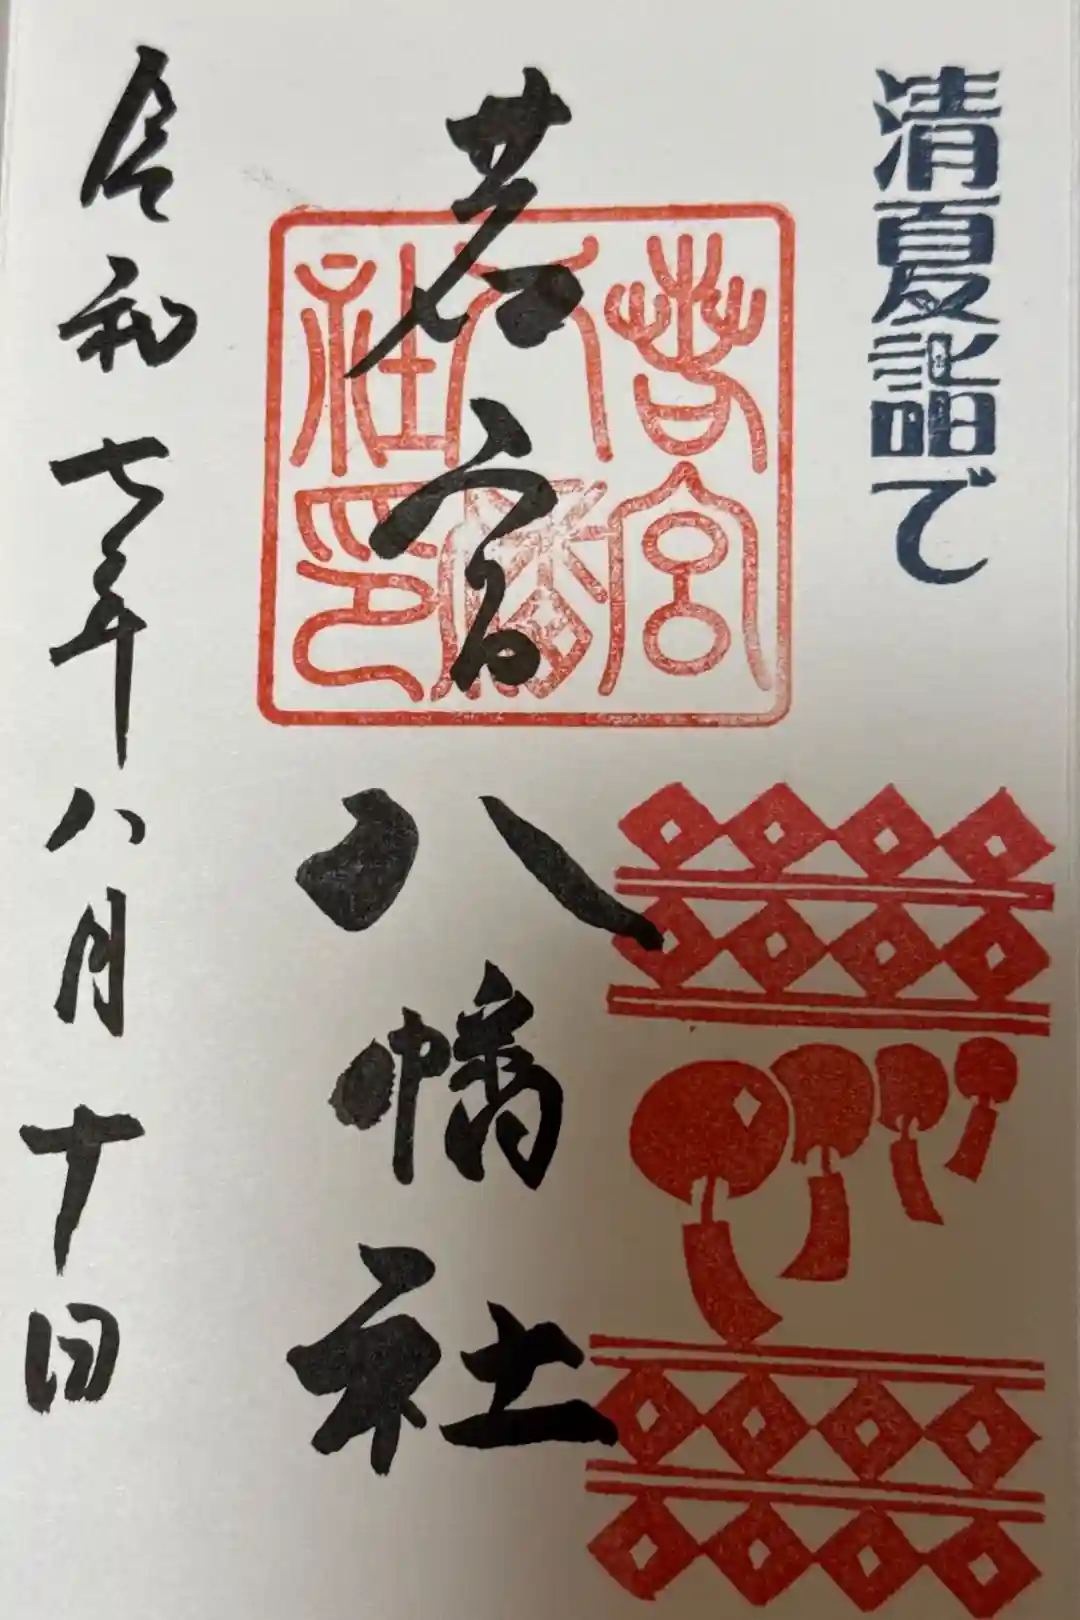 清夏詣で
若宮八幡社
若宮
八幡
社印
令和七年八月十日